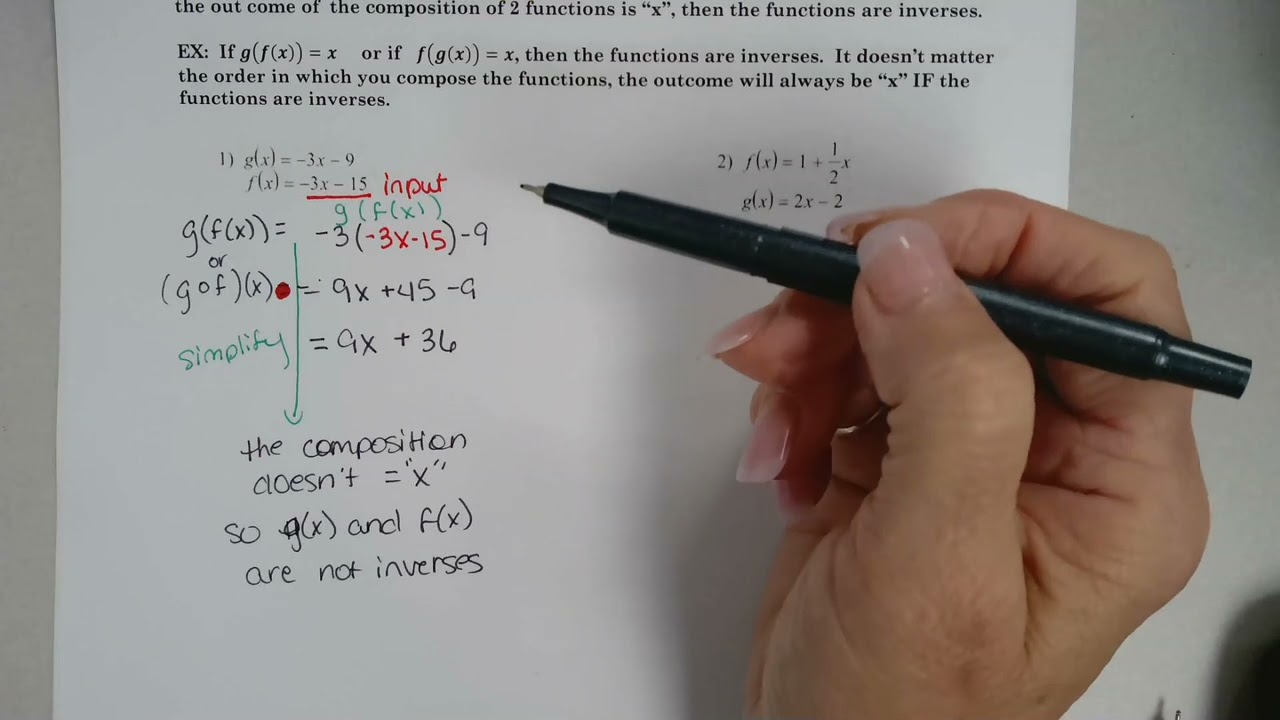 the out come of the composition of 2 functions is “x”, then the functions are inverses.
EX: If g(f(x)) = x or if f(g(x)) = x, then the functions are inverses. It doesn’t matter
the order in which you compose the functions, the outcome will always be “x” IF the
functions are inverses.
1) g(x) = −3x − 9
f(x) = −3x − 15 input
g(f(x))
g(f(x)) = -3(-3x-15)-9
or
(gof)(x) = 9x +45 -9
simplify = 9x + 36
the composition
doesn't = "x"
so g(x) and f(x)
are not inverses
2) f(x) = 1 + 1/2 x
g(x) = 2x − 2